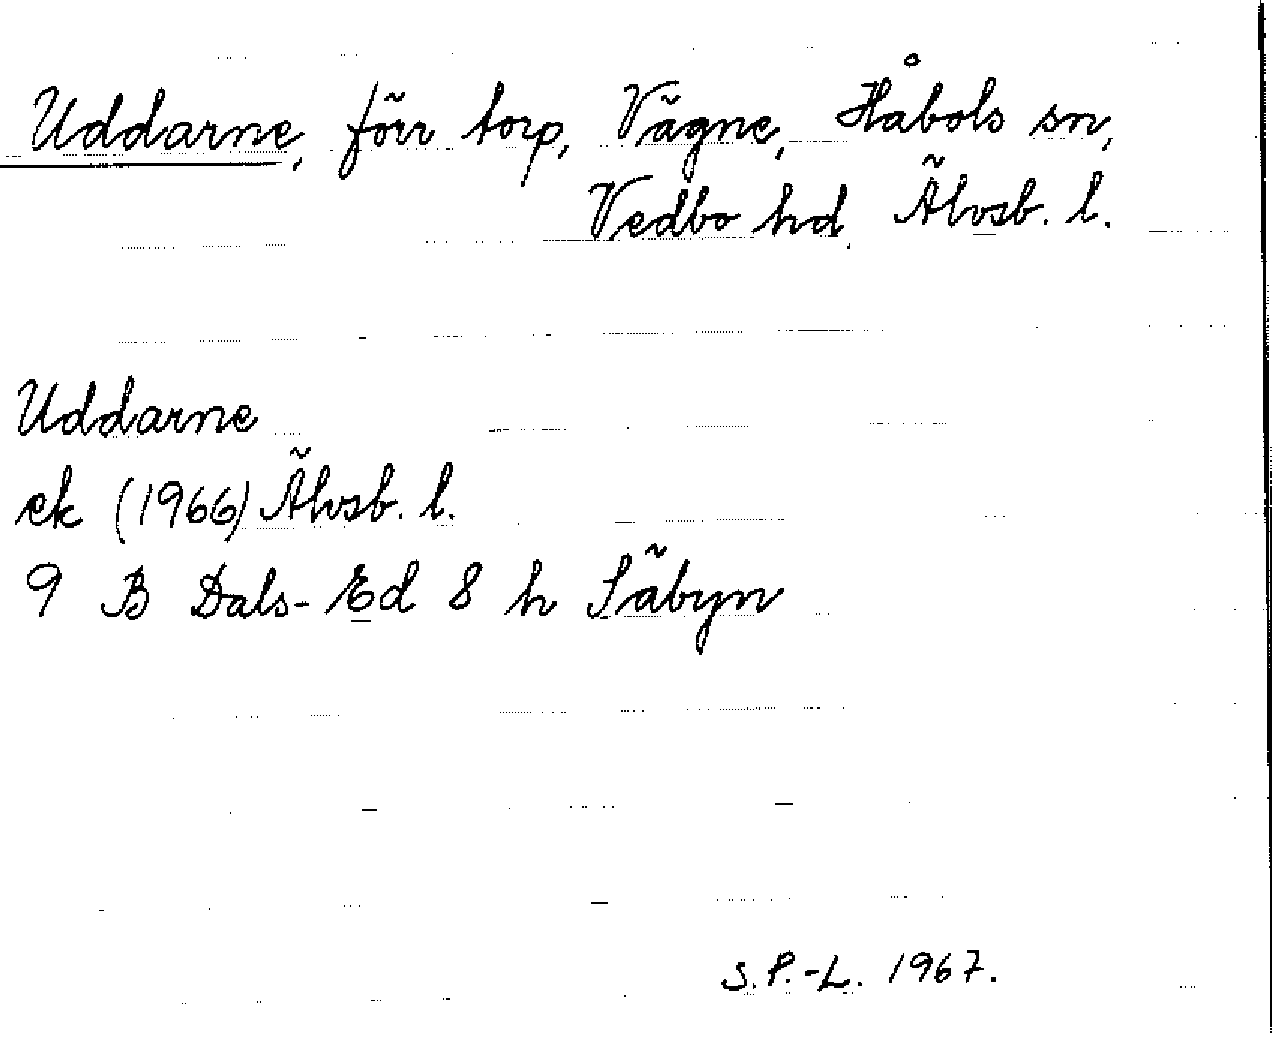 Uddarne, förr torp, Vägne, Håbols sn,
Vedbo hd. Älvsb. l.
Uddarne
ek (1966) Älvsb. l.
9 B Dals-Ed 8 h Säbyn
S.P.-L. 1967.